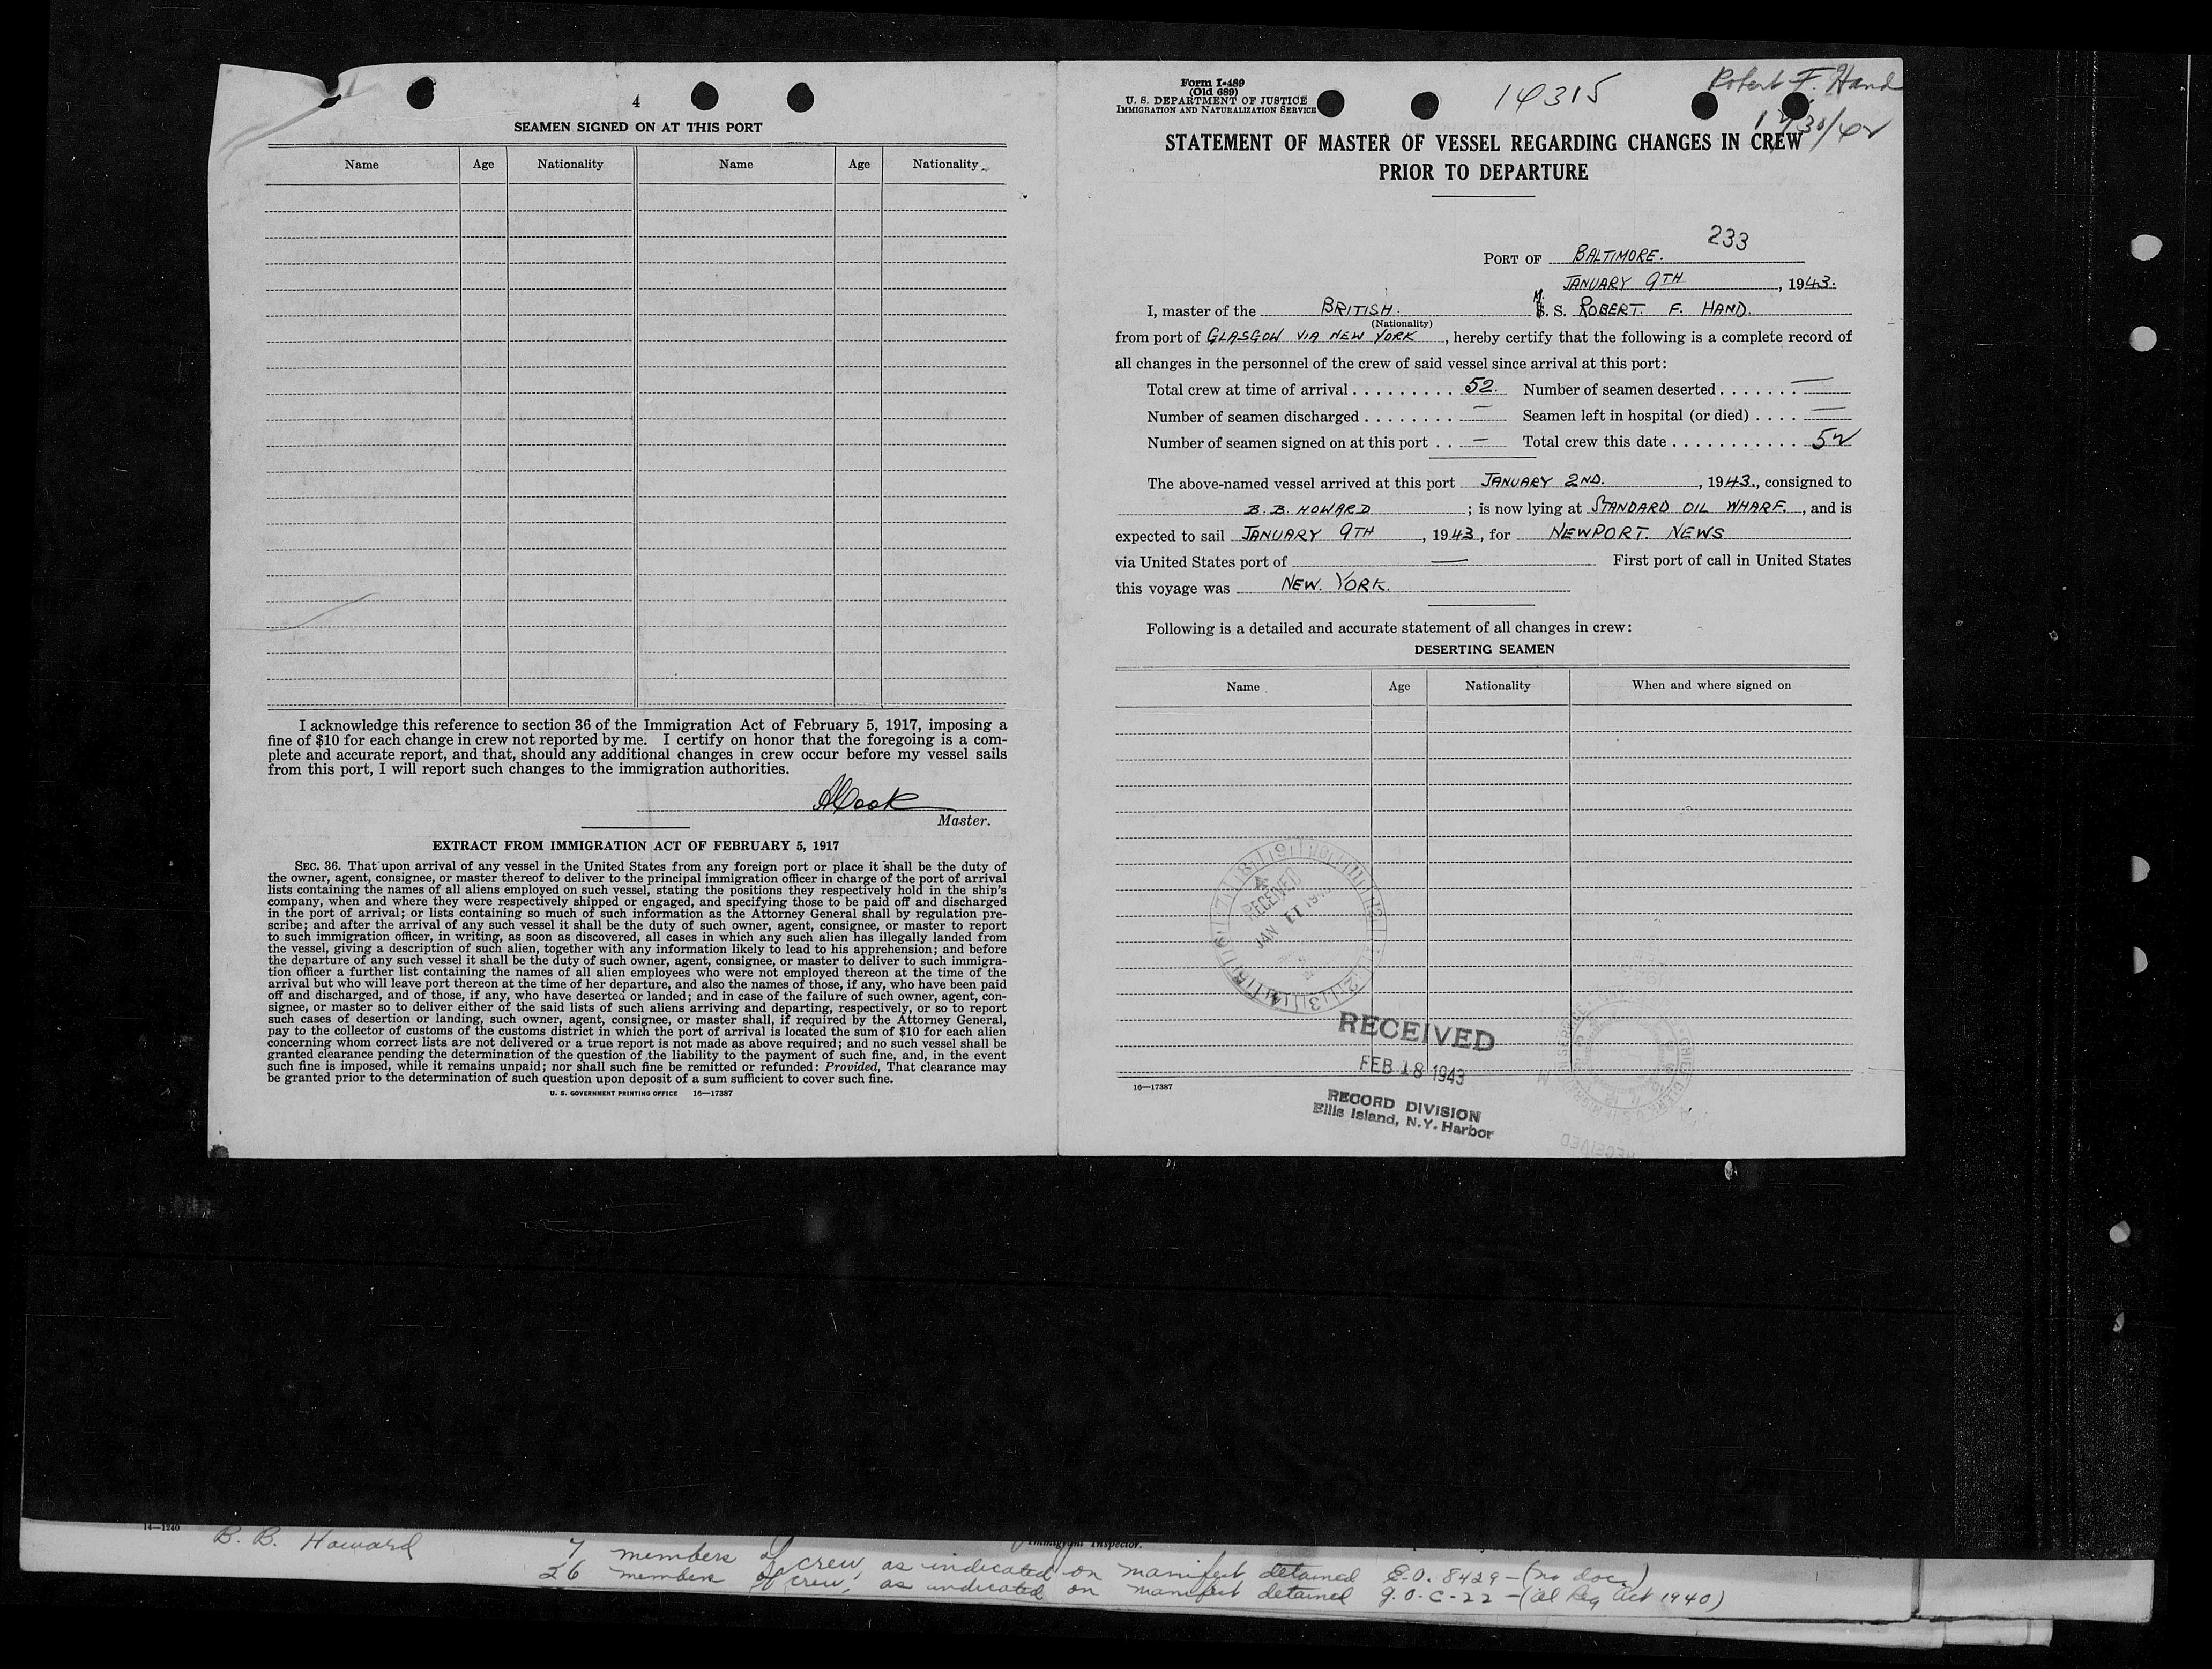 4
SEAMEN SIGNED ON AT THIS PORT
Name Age Nationality Name Age Nationality
I acknowledge this reference to section 36 of the Immigration Act of February 5, 1917, imposing a
fine of $10 for each change in crew not reported by me. I certify on honor that the foregoing is a com-
plete and accurate report, and that, should any additional changes in crew occur before my vessel sails
from this port, I will report such changes to the immigration authorities.
ACook
Master.
EXTRACT FROM IMMIGRATION ACT OF FEBRUARY 5, 1917
SEC. 36. That upon arrival of any vessel in the United States from any foreign port or place it shall be the duty of
the owner, agent, consignee, or master thereof to deliver to the principal immigration officer in charge of the port of arrival
lists containing the names of all aliens employed on such vessel, stating the positions they respectively hold in the ship's
company, when and where they were respectively shipped or engaged, and specifying those to be paid off and discharged
in the port of arrival; or lists containing so much of such information as the Attorney General shall by regulation pre-
scribe; and after the arrival of any such vessel it shall be the duty of such owner, agent, consignee, or master to report
to such immigration officer, in writing, as soon as discovered, all cases in which any such alien has illegally landed from
the vessel, giving a description of such alien, together with any information likely to lead to his apprehension; and before
the departure of any such vessel it shall be the duty of such owner, agent, consignee, or master to deliver to such immigra-
tion officer a further list containing the names of all alien employees who were not employed thereon at the time of the
arrival but who will leave port thereon at the time of her departure, and also the names of those, if any, who have been paid
off and discharged, and of those, if any, who have deserted or landed; and in case of the failure of such owner, agent, con-
signee, or master so to deliver either of the said lists of such aliens arriving and departing, respectively, or so to report
such cases of desertion or landing, such owner, agent, consignee, or master shall, if required by the Attorney General,
pay to the collector of customs of the customs district in which the port of arrival is located the sum of $10 for each alien
concerning whom correct lists are not delivered or a true report is not made as above required; and no such vessel shall be
granted clearance pending the determination of the question of the liability to the payment of such fine, and, in the event
such fine is imposed, while it remains unpaid; nor shall such fine be remitted or refunded: Provided, That clearance may
be granted prior to the determination of such question upon deposit of a sum sufficient to cover such fine.
U. S. GOVERNMENT PRINTING OFFICE 16—17387
Form I-489
(Old 689)
U. S. DEPARTMENT OF JUSTICE
IMMIGRATION AND NATURALIZATION SERVICE
14315
Robert F. Hand
12/30/42
STATEMENT OF MASTER OF VESSEL REGARDING CHANGES IN CREW
PRIOR TO DEPARTURE
233
PORT OF BALTIMORE.
JANUARY 9TH, 1943.
I, master of the BRITISH. M. S. ROBERT. F. HAND.
(Nationality)
from port of GLASGOW VIA NEW YORK, hereby certify that the following is a complete record of
all changes in the personnel of the crew of said vessel since arrival at this port:
Total crew at time of arrival . . . . . . . . . 52. Number of seamen deserted . . . . . . . —
Number of seamen discharged . . . . . . . . — Seamen left in hospital (or died) . . . . —
Number of seamen signed on at this port . . — Total crew this date . . . . . . . . . . . . 52
The above-named vessel arrived at this port JANUARY 2ND., 1943., consigned to
B. B. HOWARD; is now lying at STANDARD OIL WHARF., and is
expected to sail JANUARY 9TH, 1943, for NEWPORT. NEWS
via United States port of — First port of call in United States
this voyage was NEW. YORK.
Following is a detailed and accurate statement of all changes in crew:
DESERTING SEAMEN
Name Age Nationality When and where signed on
RECEIVED
JAN 11 19
RECEIVED
FEB 18 1943
RECORD DIVISION
Ellis Island, N.Y. Harbor
16—17387
14—1240
B. B. Howard
Immigrant Inspector.
7 members of crew, as indicated on manifest detained E.O. 8429 - (no doc.)
26 members of crew, as indicated on manifest detained G.O. C-22 - (Al Reg Act 1940)